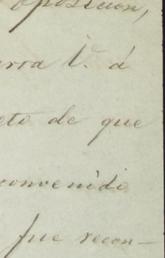 oposicion,
rroa í. á
eto de que
convenidi
fue recon-